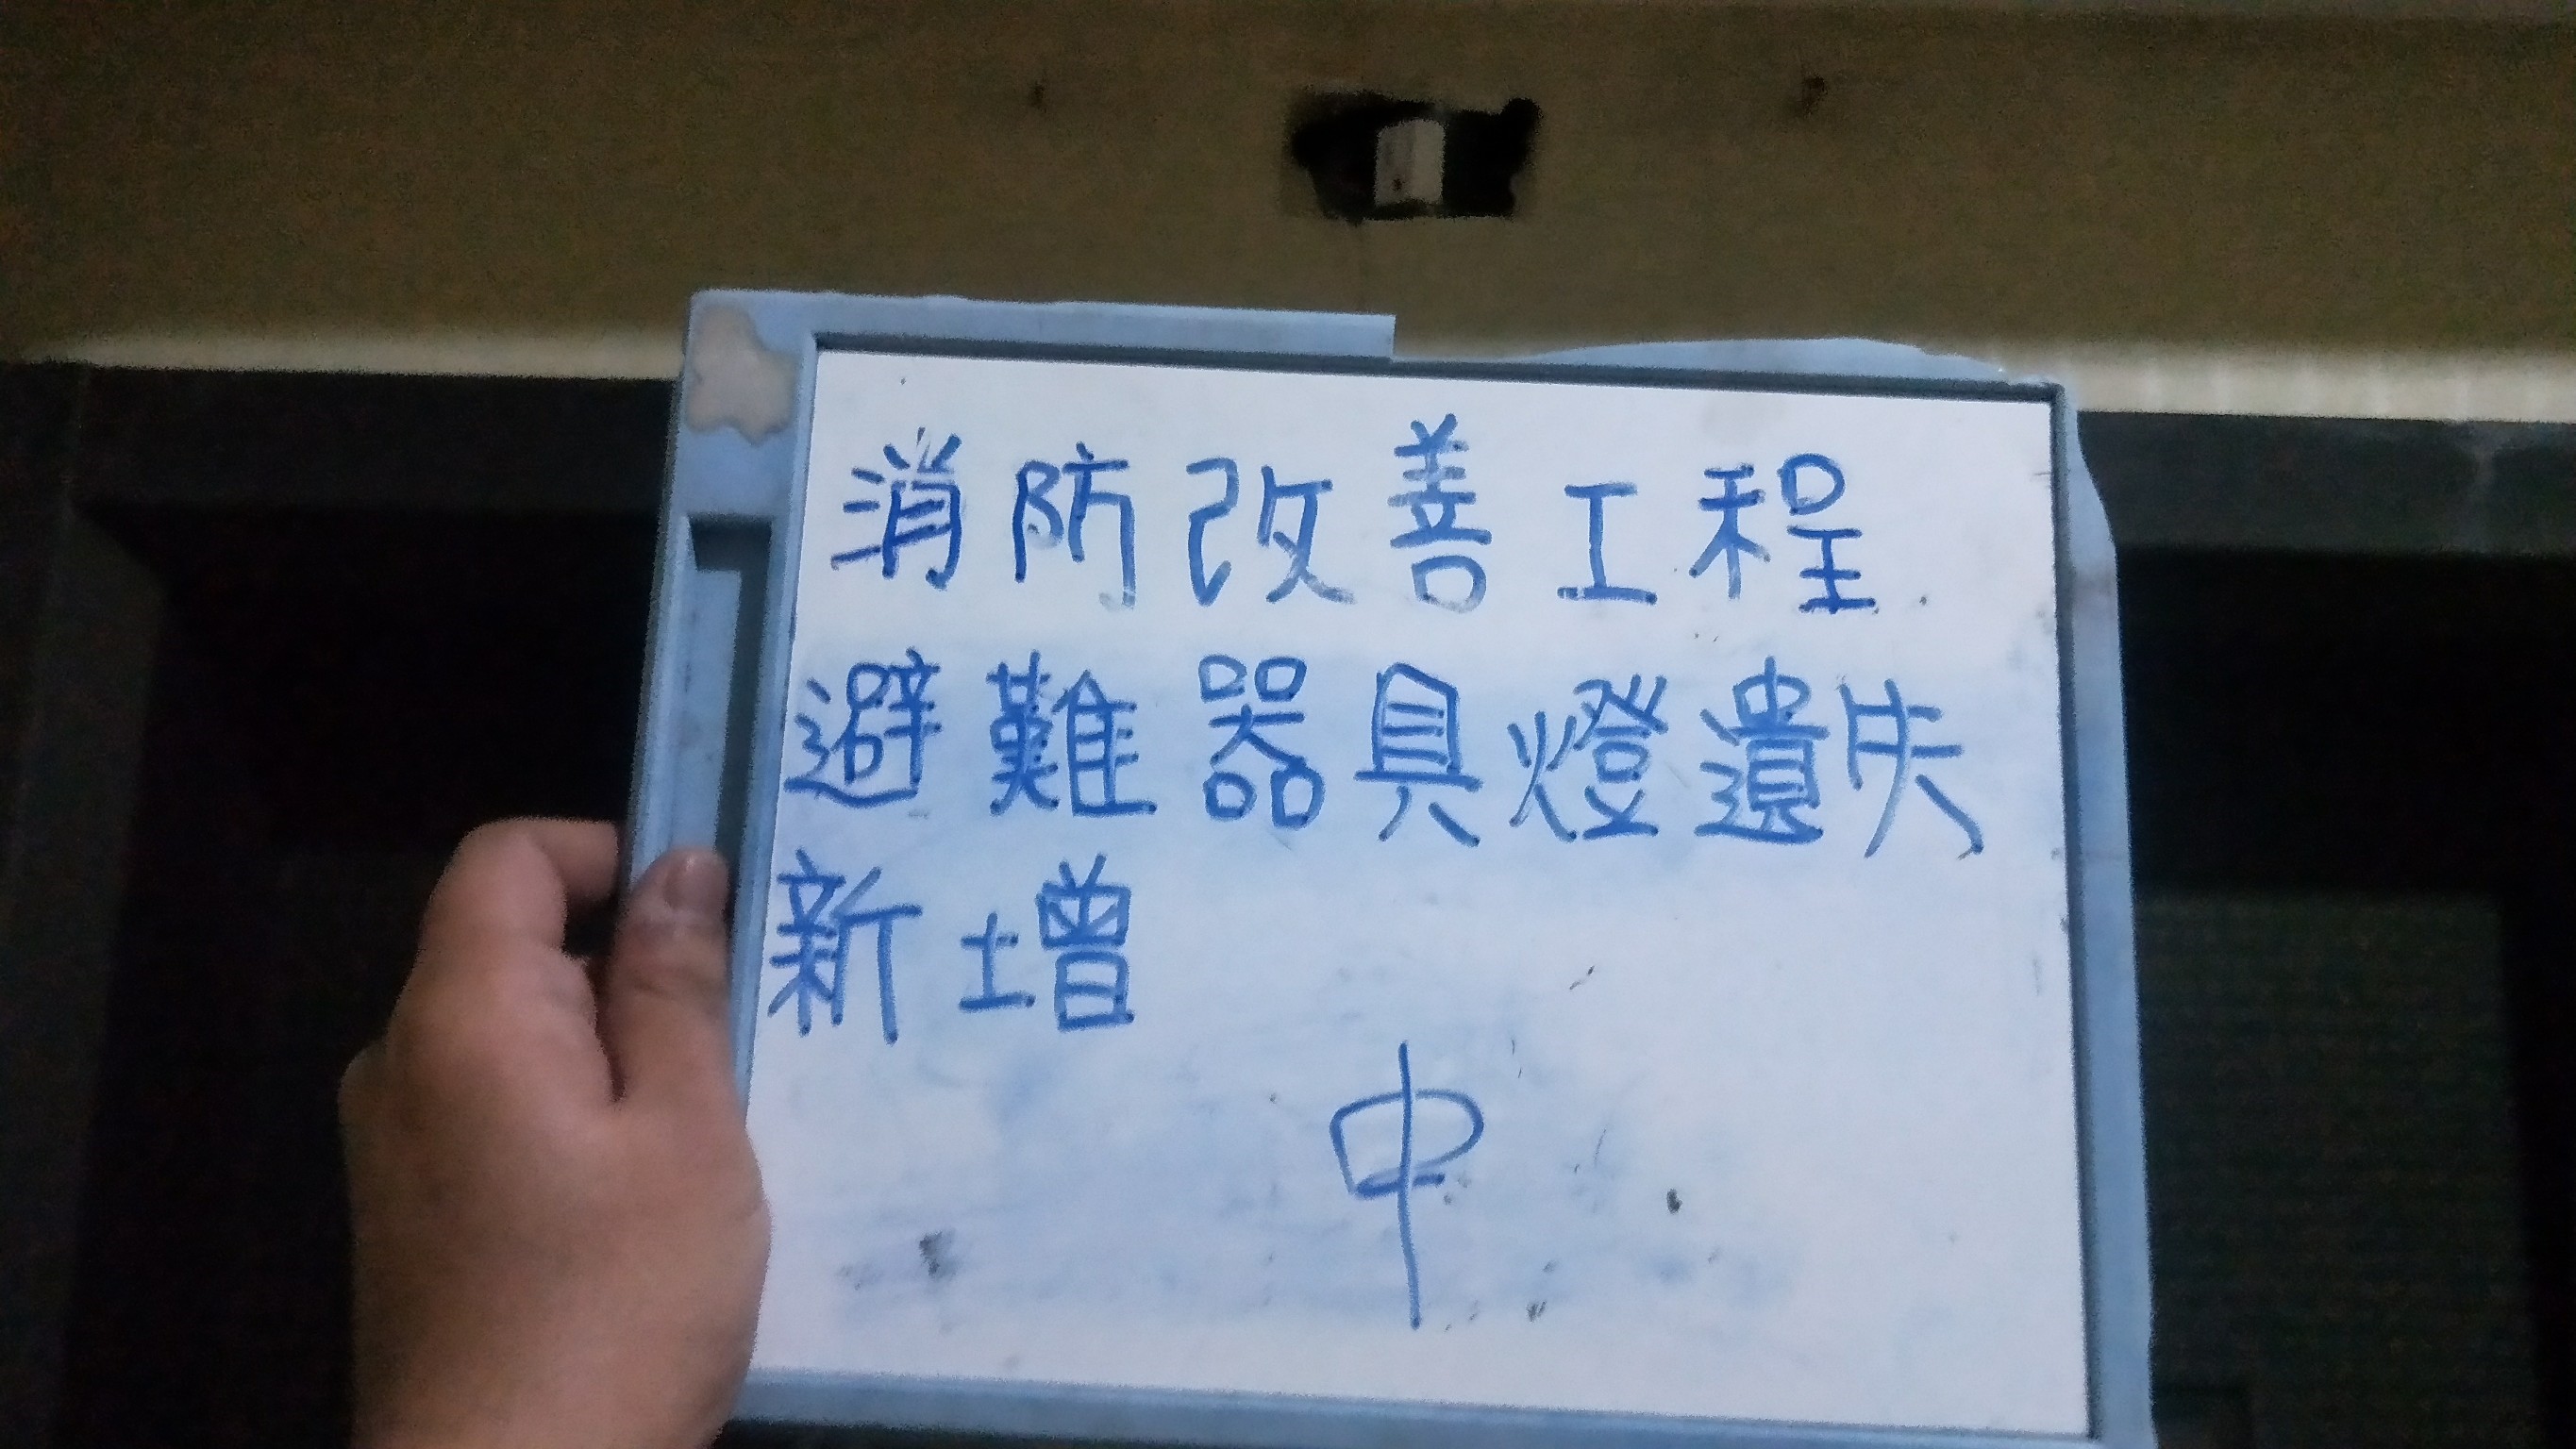 消防改善工程
避難器具燈遺失
新增
中